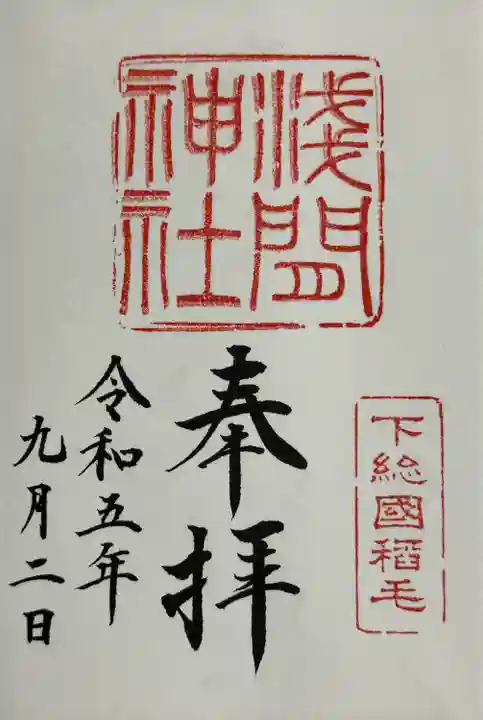 浅間
神社
下総國稲毛
奉拝
令和五年
九月二日